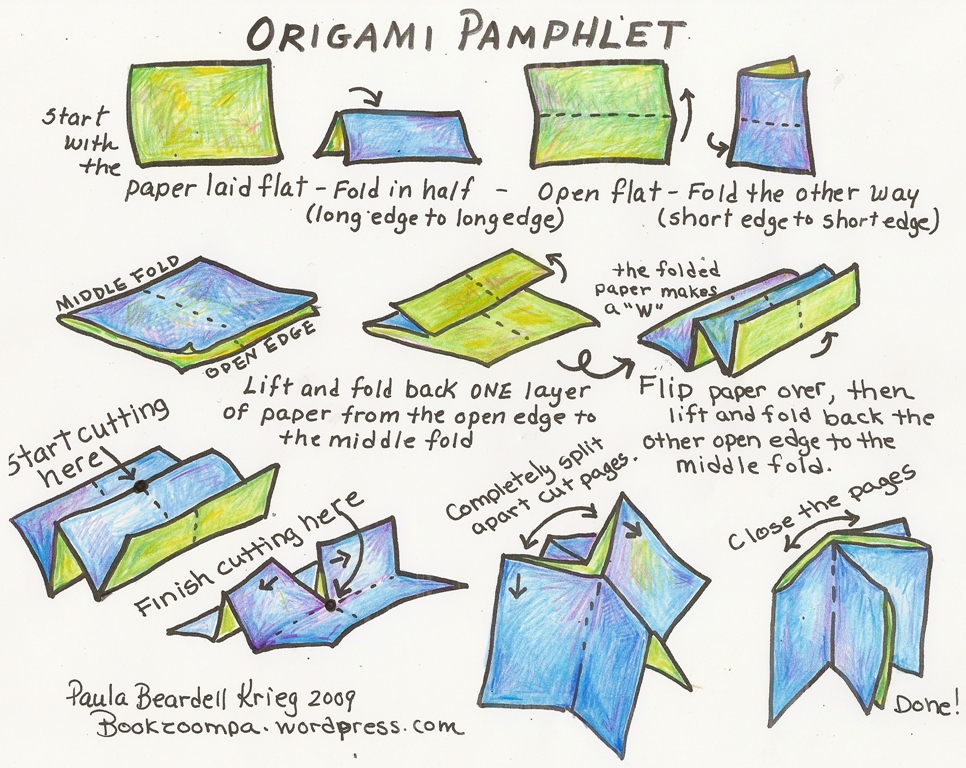 ORIGAMI PAMPHLET
start
with
the
paper laid flat - Fold in half - Open flat - Fold the other way
(long edge to long edge) (short edge to short edge)
MIDDLE FOLD
OPEN EDGE
the folded
paper makes
a "W"
Lift and fold back ONE layer
of paper from the open edge to
the middle fold
Flip paper over, then
lift and fold back the
other open edge to the
middle fold.
Start cutting
here
Finish cutting here
Completely split
apart cut pages.
Close the pages
Done!
Paula Beardell Krieg 2009
Bookzoompa.wordpress.com